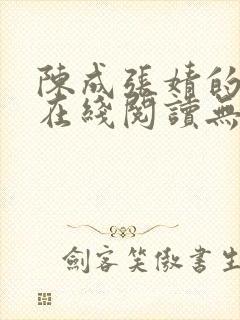 陳成張婧的
在綫閱讀無
劍客笑傲書生